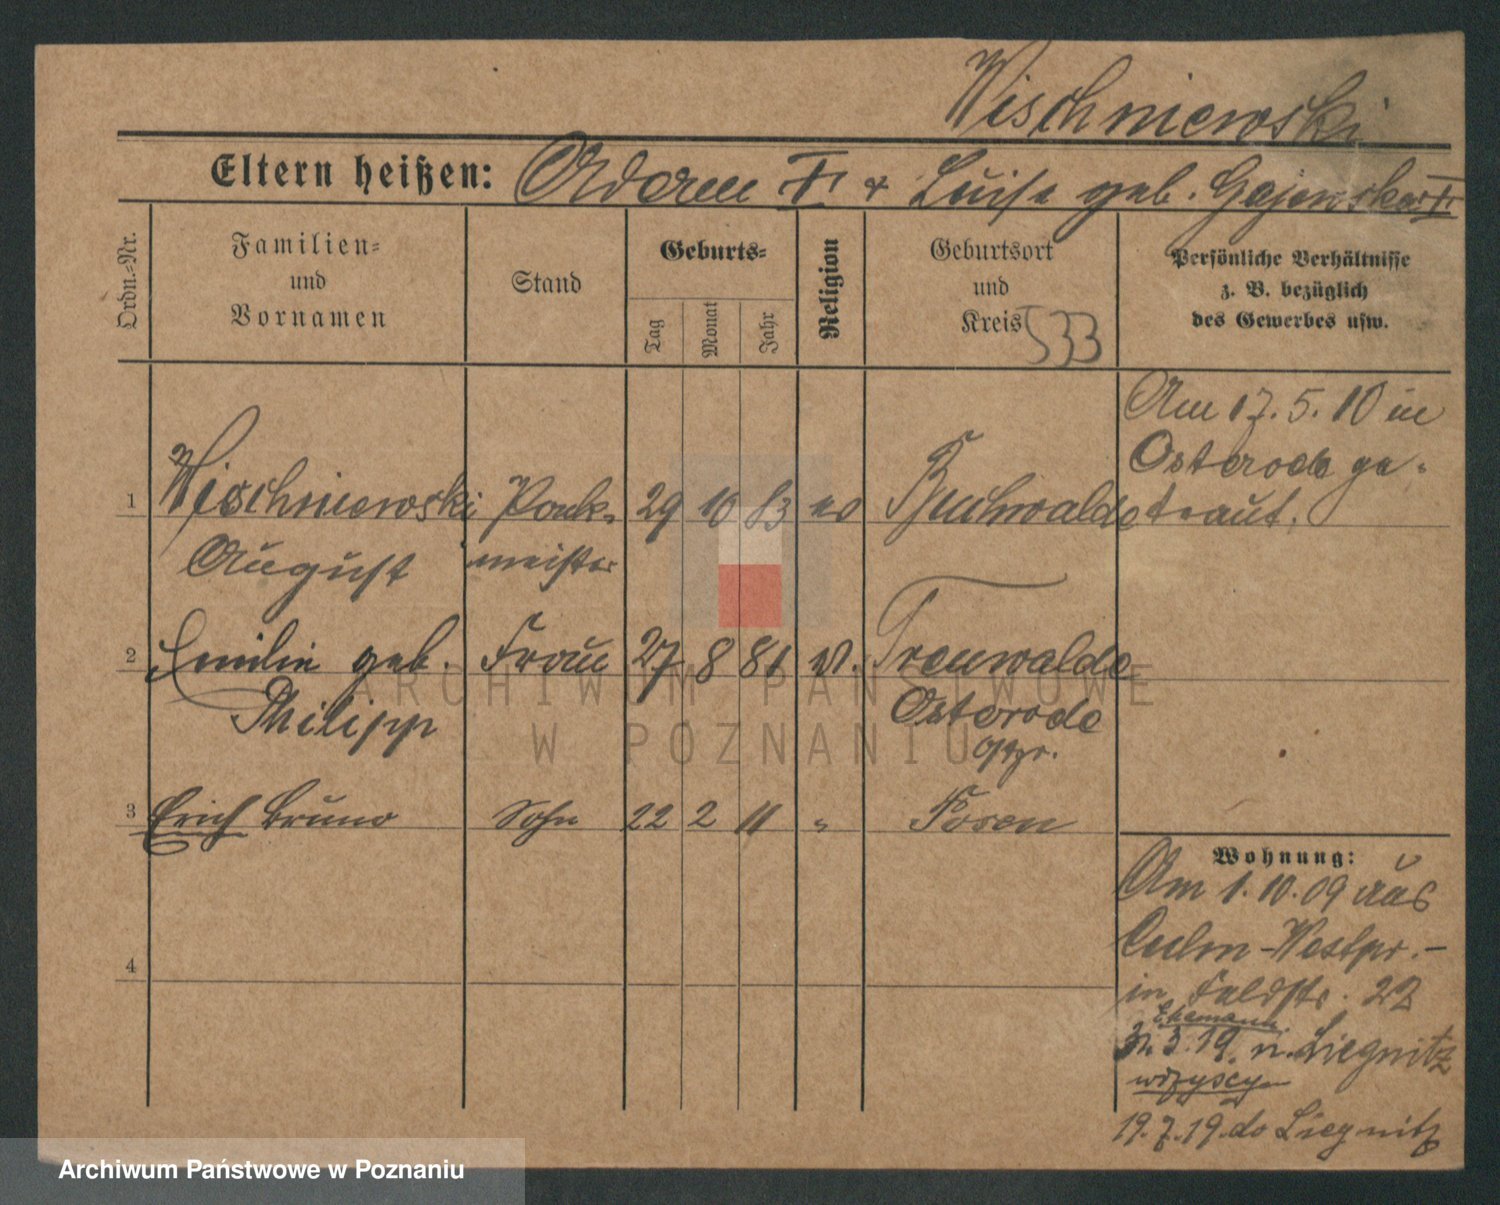 Wischniewski
Eltern heißen: Adam † + Luise geb. Gajewska †
Ordn.-Nr.
Familien-
und
Vornamen
Stand
Geburts-
Tag
Monat
Jahr
Religion
Geburtsort
und
Kreis
533
Persönliche Verhältnisse
z. B. bezüglich
des Gewerbes usw.
Am 17.5.10 in
Osterode ge-
traut.
1 Wischniewski Pack- 29 10 83 ev Buchwalde
August meister
2 Emilie geb. Frau 27 8 81 ev. Osterode
Philipp
Ostpr.
3 Erich Bruno Sohn 22 2 11 " Posen
4
Wohnung:
Am 1.10.09 aus
Culm-Westpr.-
in Feldstr. 22
Ehemann
3.19. n. Liegnitz
wszyscy
19.7.19. do Liegnitz
ARCHIWUM PAŃSTWOWE
W POZNANIU
Archiwum Państwowe w Poznaniu